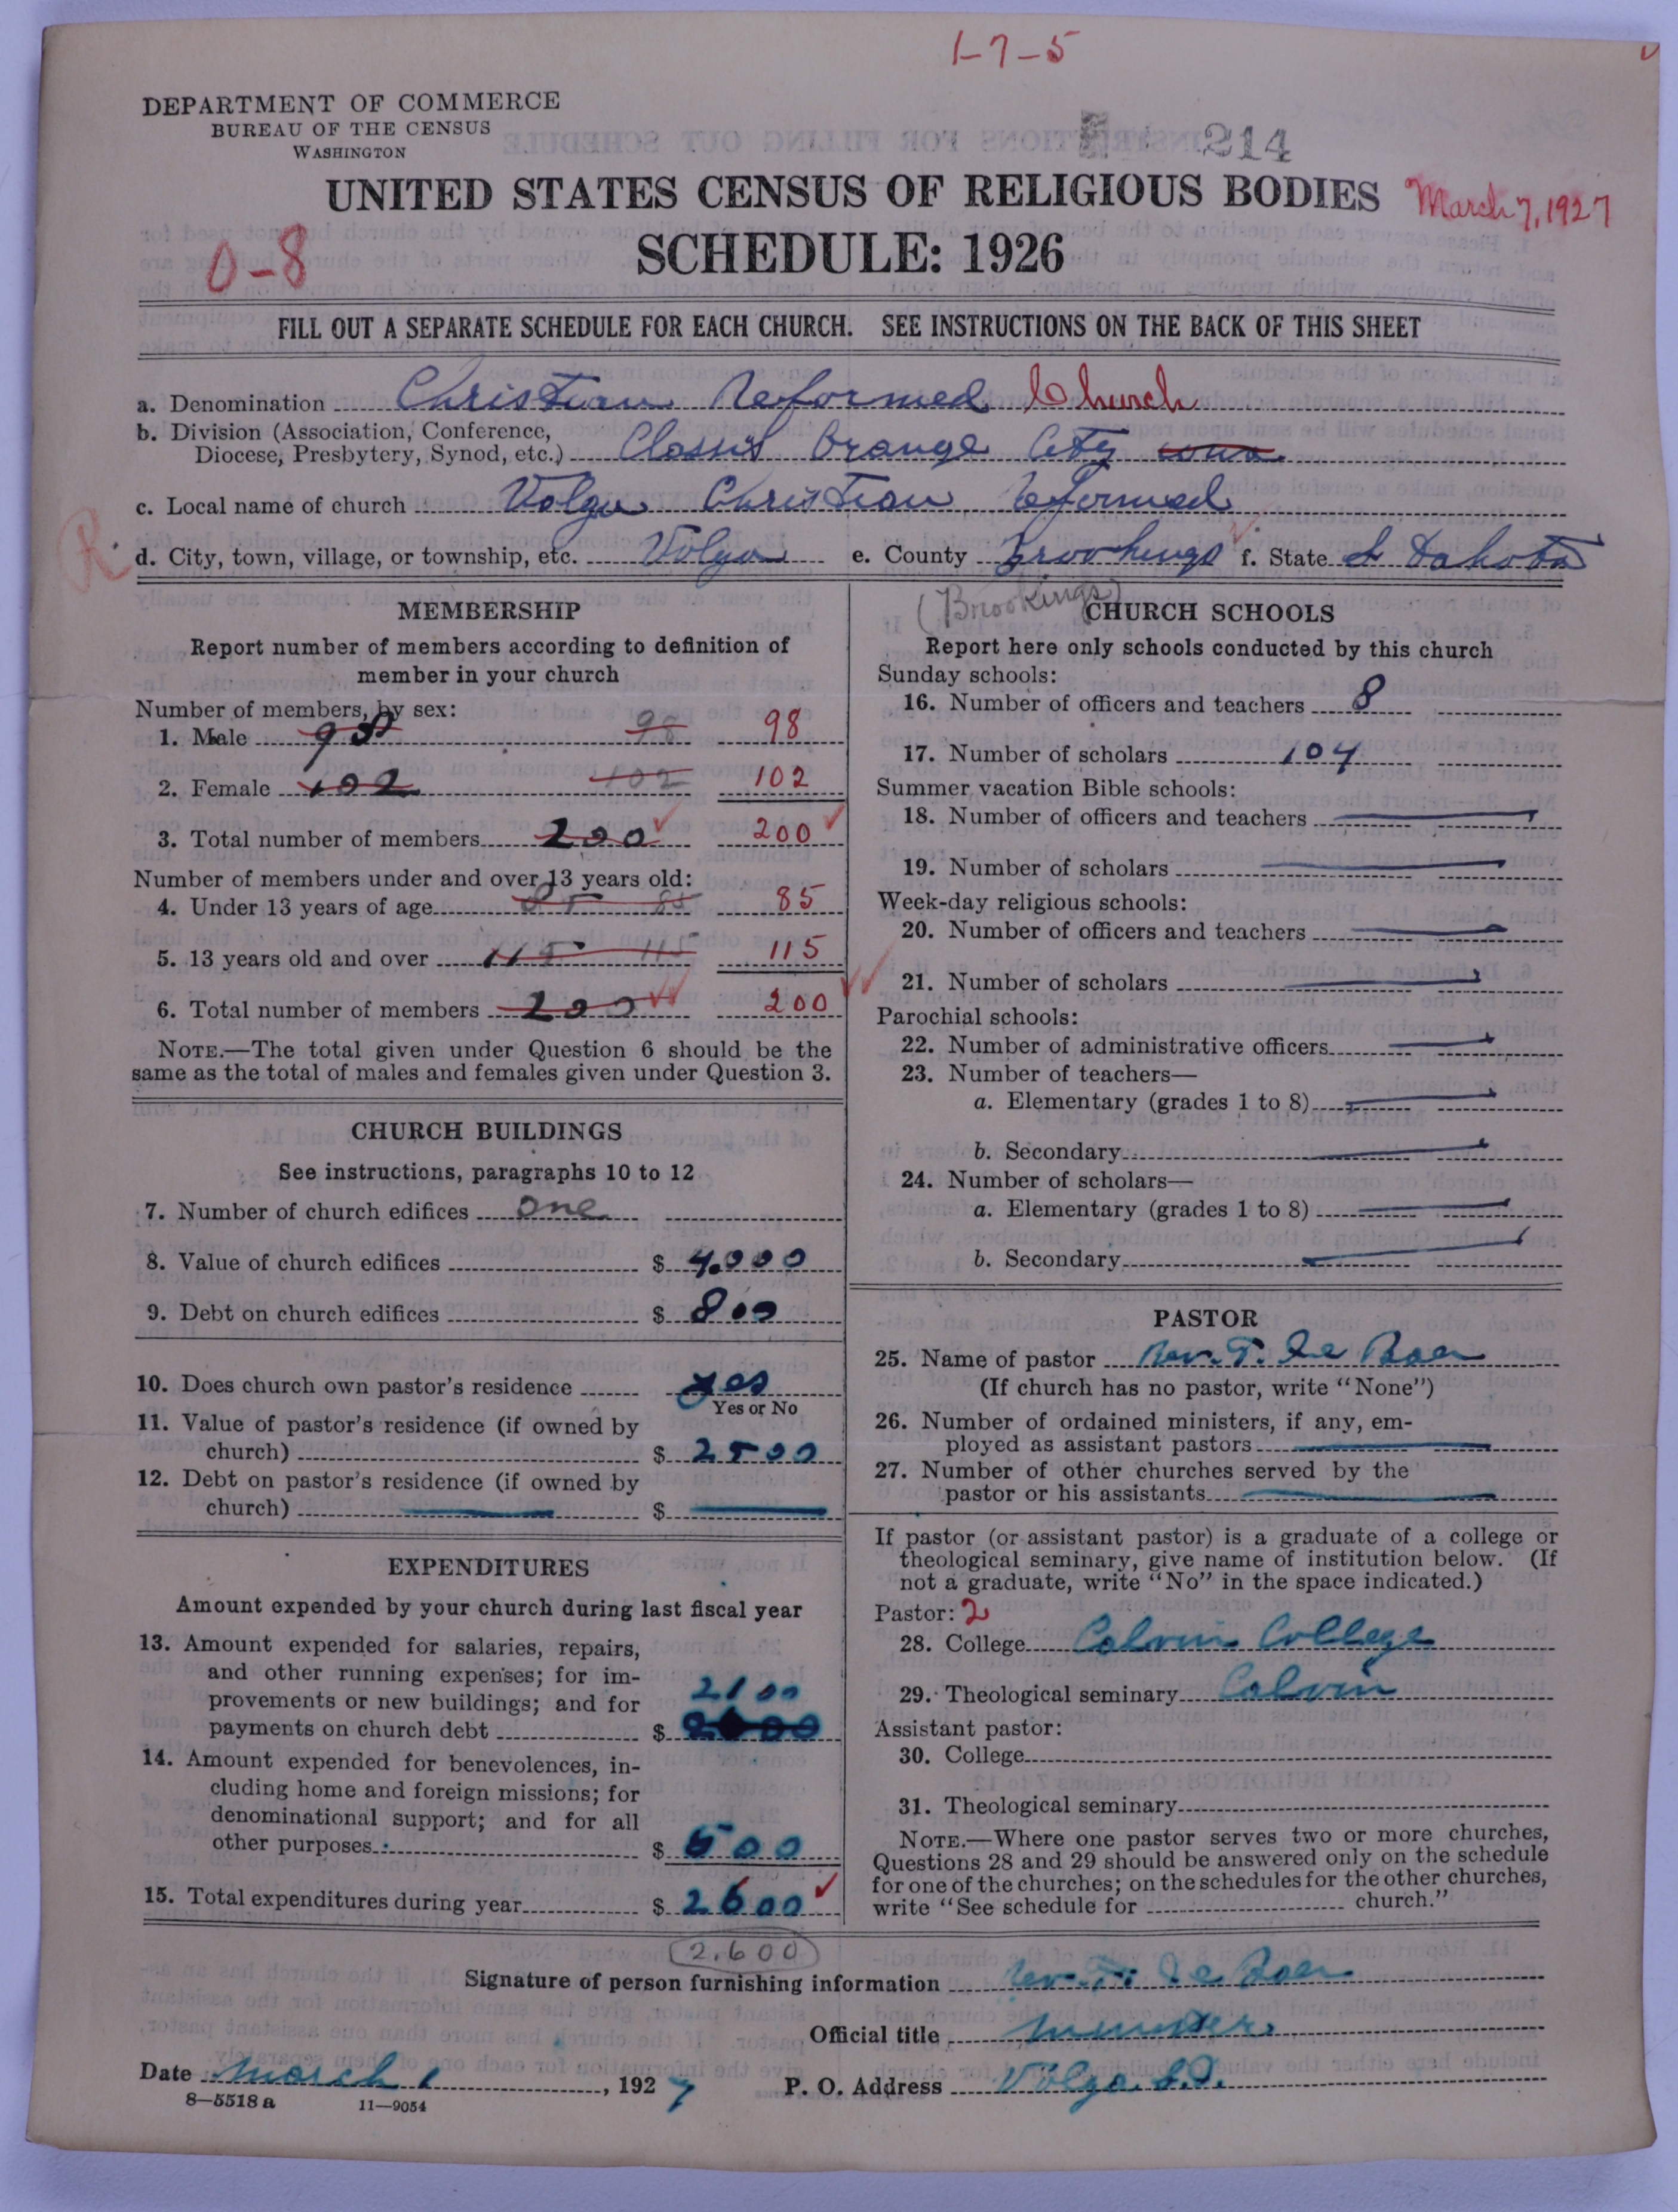 1-7-5
DEPARTMENT OF COMMERCE
BUREAU OF THE CENSUS
WASHINGTON
214
UNITED STATES CENSUS OF RELIGIOUS BODIES
March 7, 1927
SCHEDULE: 1926
0-8
FILL OUT A SEPARATE SCHEDULE FOR EACH CHURCH. SEE INSTRUCTIONS ON THE BACK OF THIS SHEET
a. Denomination Christian Reformed Church
b. Division (Association, Conference, Diocese, Presbytery, Synod, etc.) Classis Orange City Iowa
c. Local name of church Volga Christian Reformed
R
d. City, town, village, or township, etc. Volga e. County Brookings f. State S Dakota
(Brookings)
MEMBERSHIP
Report number of members according to definition of
member in your church
Number of members, by sex:
1. Male 98 98 98
2. Female 102 102 102
3. Total number of members 200 200
Number of members under and over 13 years old:
4. Under 13 years of age 85 85 85
5. 13 years old and over 115 115 115
6. Total number of members 200 200
NOTE.—The total given under Question 6 should be the
same as the total of males and females given under Question 3.
CHURCH BUILDINGS
See instructions, paragraphs 10 to 12
7. Number of church edifices one
8. Value of church edifices $ 4.000
9. Debt on church edifices $ 800
10. Does church own pastor's residence yes
Yes or No
11. Value of pastor's residence (if owned by
church) $ 2500
12. Debt on pastor's residence (if owned by
church) $
EXPENDITURES
Amount expended by your church during last fiscal year
13. Amount expended for salaries, repairs,
and other running expenses; for im-
provements or new buildings; and for
2100
payments on church debt $
14. Amount expended for benevolences, in-
cluding home and foreign missions; for
denominational support; and for all
other purposes $ 500
15. Total expenditures during year $ 2600
2.600
CHURCH SCHOOLS
Report here only schools conducted by this church
Sunday schools:
16. Number of officers and teachers 8
17. Number of scholars 104
Summer vacation Bible schools:
18. Number of officers and teachers
19. Number of scholars
Week-day religious schools:
20. Number of officers and teachers
21. Number of scholars
Parochial schools:
22. Number of administrative officers
23. Number of teachers—
a. Elementary (grades 1 to 8)
b. Secondary
24. Number of scholars—
a. Elementary (grades 1 to 8)
b. Secondary
PASTOR
25. Name of pastor Rev. T. De Boer
(If church has no pastor, write "None")
26. Number of ordained ministers, if any, em-
ployed as assistant pastors
27. Number of other churches served by the
pastor or his assistants
If pastor (or assistant pastor) is a graduate of a college or
theological seminary, give name of institution below. (If
not a graduate, write "No" in the space indicated.)
Pastor: 2
28. College Calvin College
29. Theological seminary Calvin
Assistant pastor:
30. College
31. Theological seminary
NOTE.—Where one pastor serves two or more churches,
Questions 28 and 29 should be answered only on the schedule
for one of the churches; on the schedules for the other churches,
write "See schedule for church."
Signature of person furnishing information Rev. T. De Boer
Official title Minister
Date March 1, 1927 P. O. Address Volga S.D.
8—5518 a 11—9054